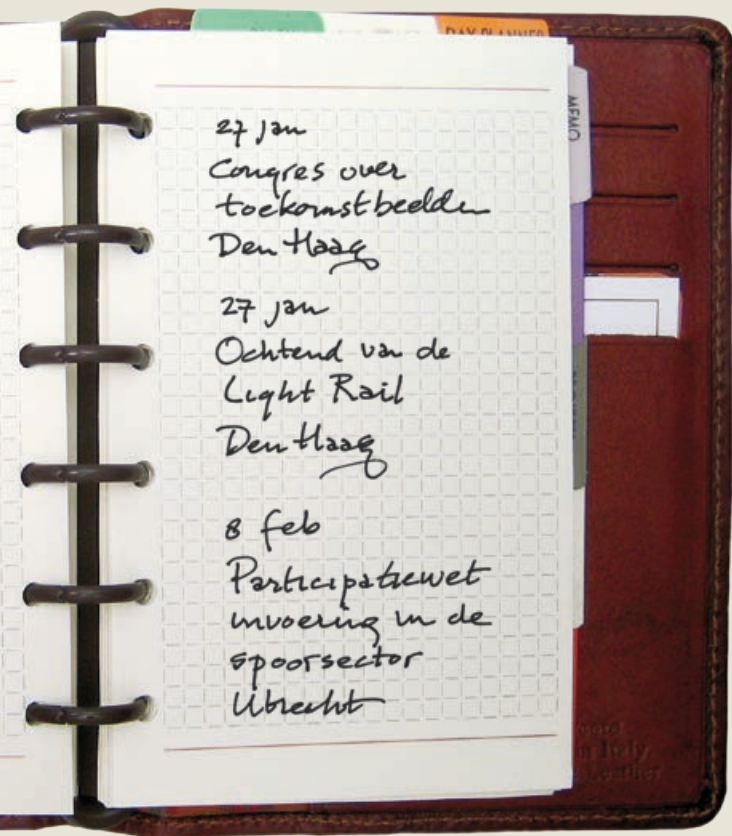 DAY PLANNER
MEMO
27 jan
Congres over
toekomstbeelden
Den Haag
27 jan
Ochtend van de
Light Rail
Den Haag
8 feb
Participatiewet
invoering in de
spoorsector
Utrecht
Italy
Leather